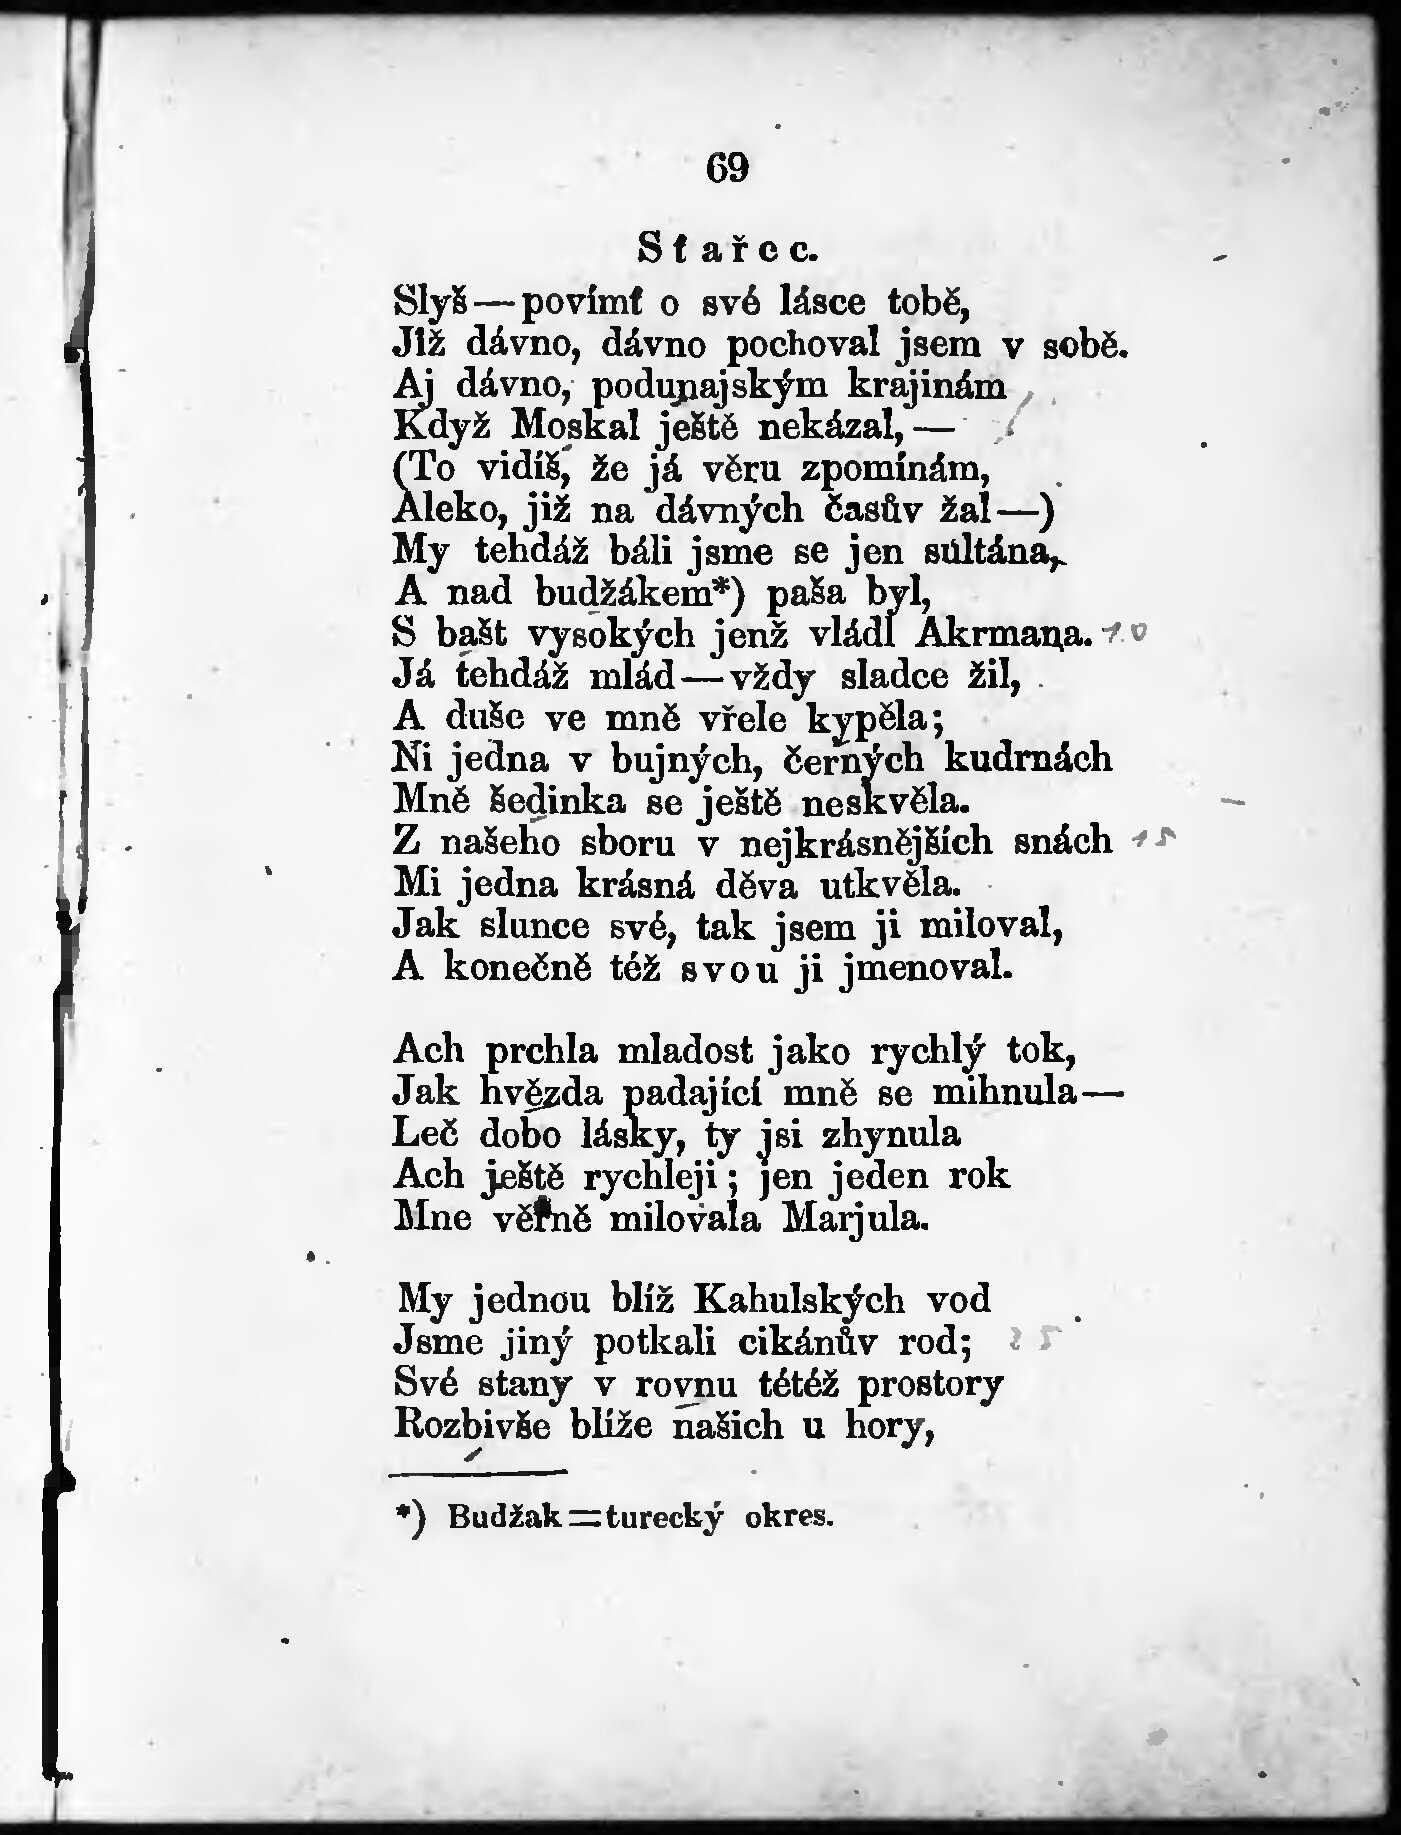 69
Stařec.
Slyš — povímť o své lásce tobě,
Již dávno, dávno pochoval jsem v sobě.
Aj dávno, podunajským krajinám
Když Moskal ještě nekázal, —
(To vidíš, že já věru zpomínám,
Aleko, již na dávných časův žal —)
My tehdáž báli jsme se jen sultána,
A nad budžákem*) paša byl,
S bašt vysokých jenž vládl Akrmana. 10
Já tehdáž mlád — vždy sladce žil,
A duše ve mně vřele kypěla;
Ni jedna v bujných, černých kudrnách
Mně šedinka se ještě neskvěla.
Z našeho sboru v nejkrásnějších snách 15
Mi jedna krásná děva utkvěla.
Jak slunce své, tak jsem ji miloval,
A konečně též svou ji jmenoval.
Ach prchla mladost jako rychlý tok,
Jak hvězda padající mně se mihnula —
Leč dobo lásky, ty jsi zhynula
Ach ještě rychleji; jen jeden rok
Mne věrně milovala Marjula.
My jednou blíž Kahulských vod
Jsme jiný potkali cikánův rod;
Své stany v rovnu tétéž prostory
Rozbivše blíže našich u hory,
*) Budžak = turecký okres.